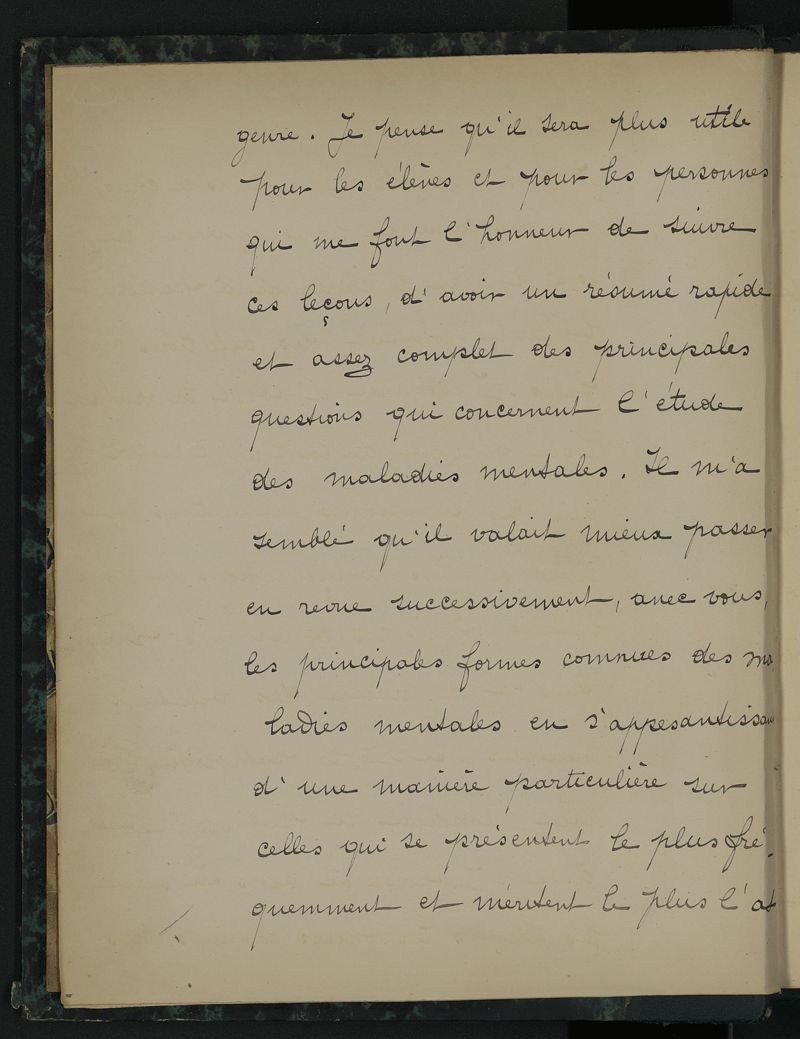 genre. Je pense qu'il sera plus utile
pour les élèves et pour les personnes
qui me font l'honneur de suivre
ces leçons, d'avoir un résumé rapide
et assez complet des principales
questions qui concernent l'étude
des maladies mentales. Il m'a
semblé qu'il valait mieux passer
en revue successivement, avec vous,
les principales formes connues des ma
ladies mentales en s'appesantissant
d'une manière particulière sur
celles qui se présentent le plus fré-
quemment et méritent le plus l'at